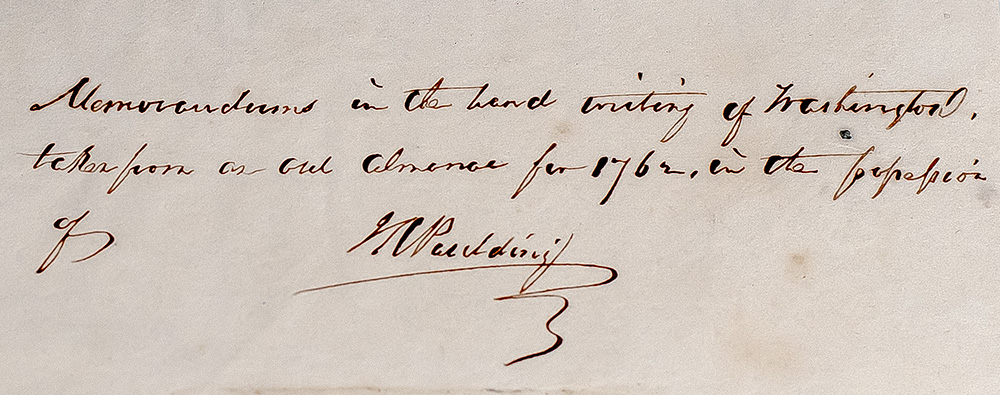 Memorandums in the hand writing of Washington,
taken from an old almanac for 1762, in the possession
of
JKPaulding